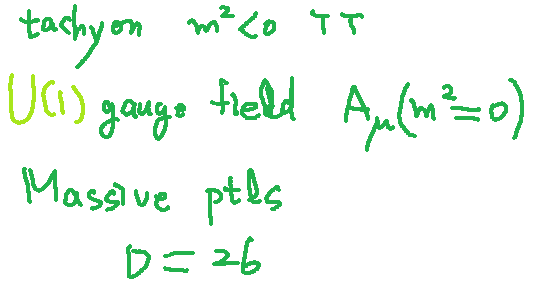 tachyon m²<0 TT
U(1) gauge field Aμ(m²=0)
Massive ptls
D=26